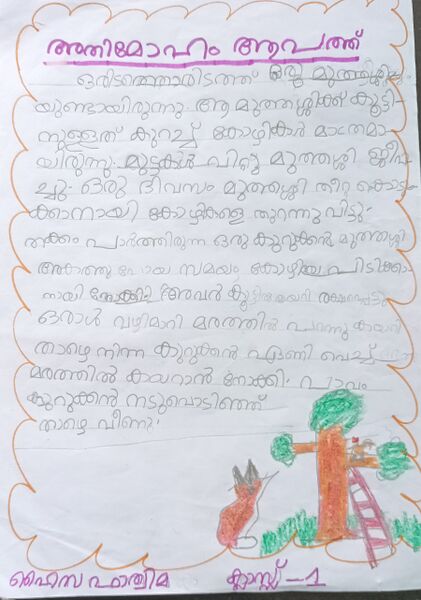 അതിമോഹം ആപത്ത്
ഒരിടത്തൊരിടത്ത് ഒരു മുത്തശ്ശി
യുണ്ടായിരുന്നു. ആ മുത്തശ്ശിക്ക് കൂട്ടി
നുള്ളത് കുറച്ച് കോഴികൾ മാത്രമാ
യിരുന്നു. മുട്ടകൾ വിറ്റു മുത്തശ്ശി ജീവി
ച്ചു. ഒരു ദിവസം മുത്തശ്ശി തീറ്റ കൊടു
ക്കാനായി കോഴികളെ തുറന്നു വിട്ടു.
തക്കം പാർത്തിരുന്ന ഒരു കുറുക്കൻ മുത്തശ്ശി
അകത്തു പോയ സമയം കോഴിയെ പിടിക്കാ
നായി നോക്കി. അവർ കൂട്ടിൽ കയറി രക്ഷപ്പെട്ടു.
ഒരാൾ വഴിമാറി മരത്തിൽ പറന്നു കയറി
താഴെ നിന്ന കുറുക്കൻ ഏണി വെച്ച്
മരത്തിൽ കയറാൻ നോക്കി. പാവം
കുറുക്കൻ നടുവൊടിഞ്ഞ്
താഴെ വീണു.
ഹൈസ ഫാത്വിമ ക്ലാസ്സ് - 1